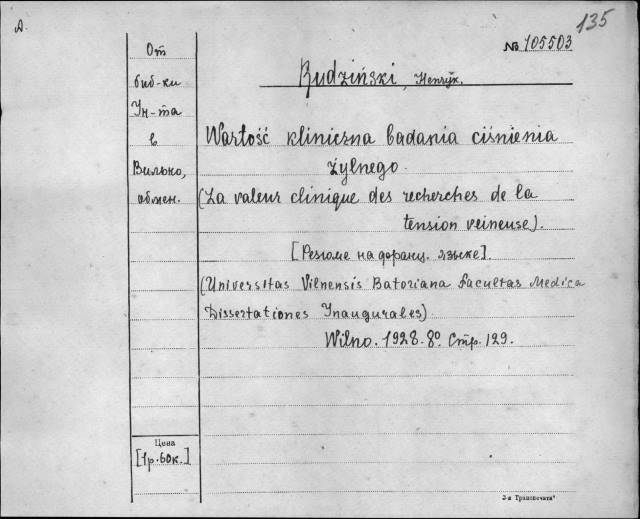 A.
135
№ 105503
Rudziński, Henryk.
От
биб-ки
Ун-та
в
Вильно,
обмен.
Wartość kliniczna badania ciśnienia
żylnego.
(La valeur clinique des recherches de la
tension veineuse).
[Резюме на франц. языке].
(Universitas Vilnensis Batoriana Facultas Medica
Dissertationes Inaugurales)
Wilno. 1928. 8º. Стр. 129.
Цена
[1р.60к.]
3-я Транспечати"